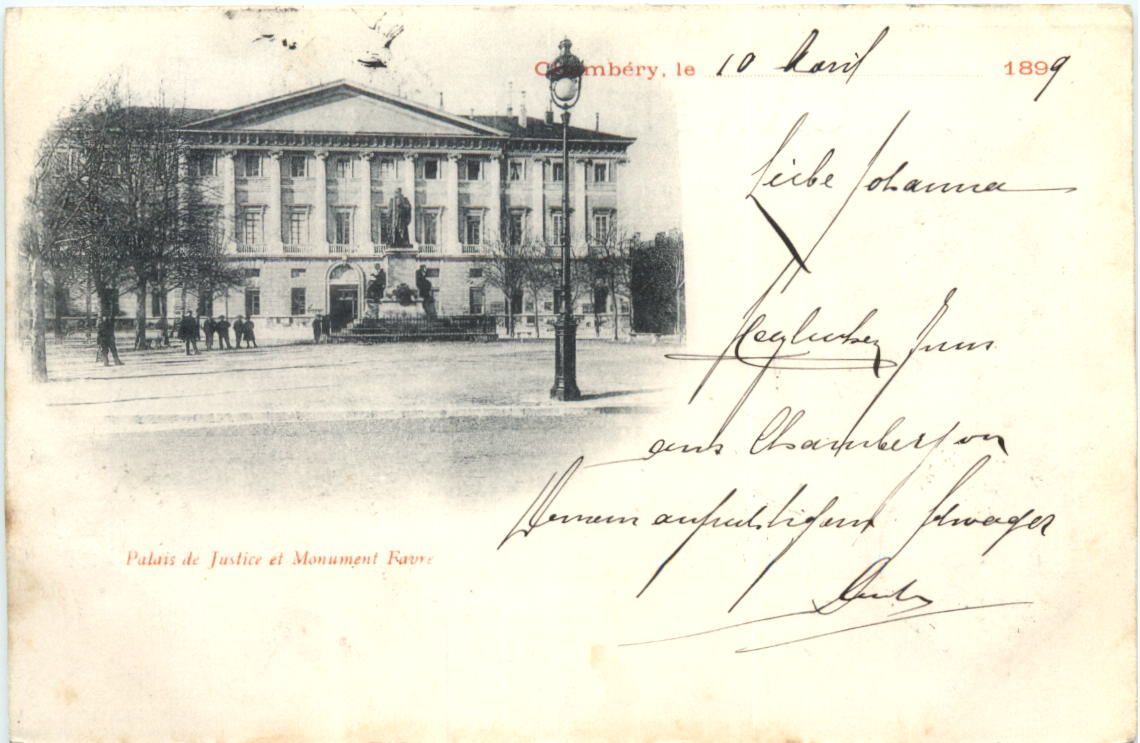 Chambéry, le 10 Avril 1899
Liebe Johanna
Herzlichen Gruss
aus Chambery von
Deinem aufrichtigem Schwager
Palais de Justice et Monument Favre